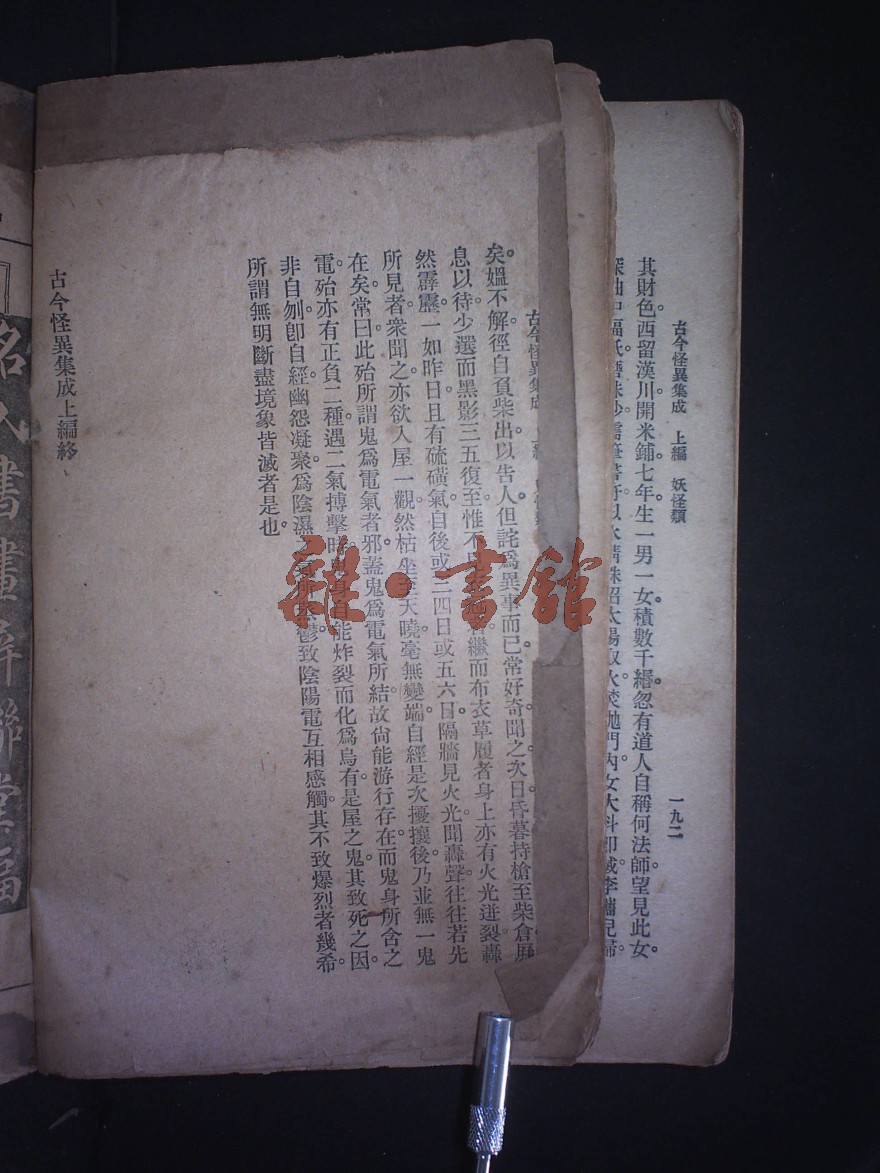 古今怪異集成　上編　妖怪類　一九二
其財色西留漢川開米鋪七年。生一男一女積數千緡忽有道人自稱何法師望見此女
古今怪異集成
矣。媼不解徑自負柴出以告人但詫爲異事而已常好奇聞之次日昏暮持槍至柴倉屏
息以待少選而黑影三五復至惟不繼而布衣草履者身上亦有火光迸裂轟
然霹靂一如昨日且有硫磺氣自後或三四日或五六日隔牆見火光聞轟聲往往若先
所見者衆聞之亦欲入屋一觀然枯坐至天曉毫無變端自經是次擾攘後乃並無一鬼
在矣常曰此殆所謂鬼爲電氣者邪蓋鬼爲電氣所結故尙能游行存在而鬼身所含之
電殆亦有正負二種遇二氣搏擊時能炸裂而化爲烏有是屋之鬼其致死之因
非自刎卽自經幽怨凝聚爲陰濕之鬱致陰陽電互相感觸其不致爆烈者幾希
所謂無明斷盡境象皆滅者是也
古今怪異集成上編終
雜·書館
名人書畫屏聯堂幅